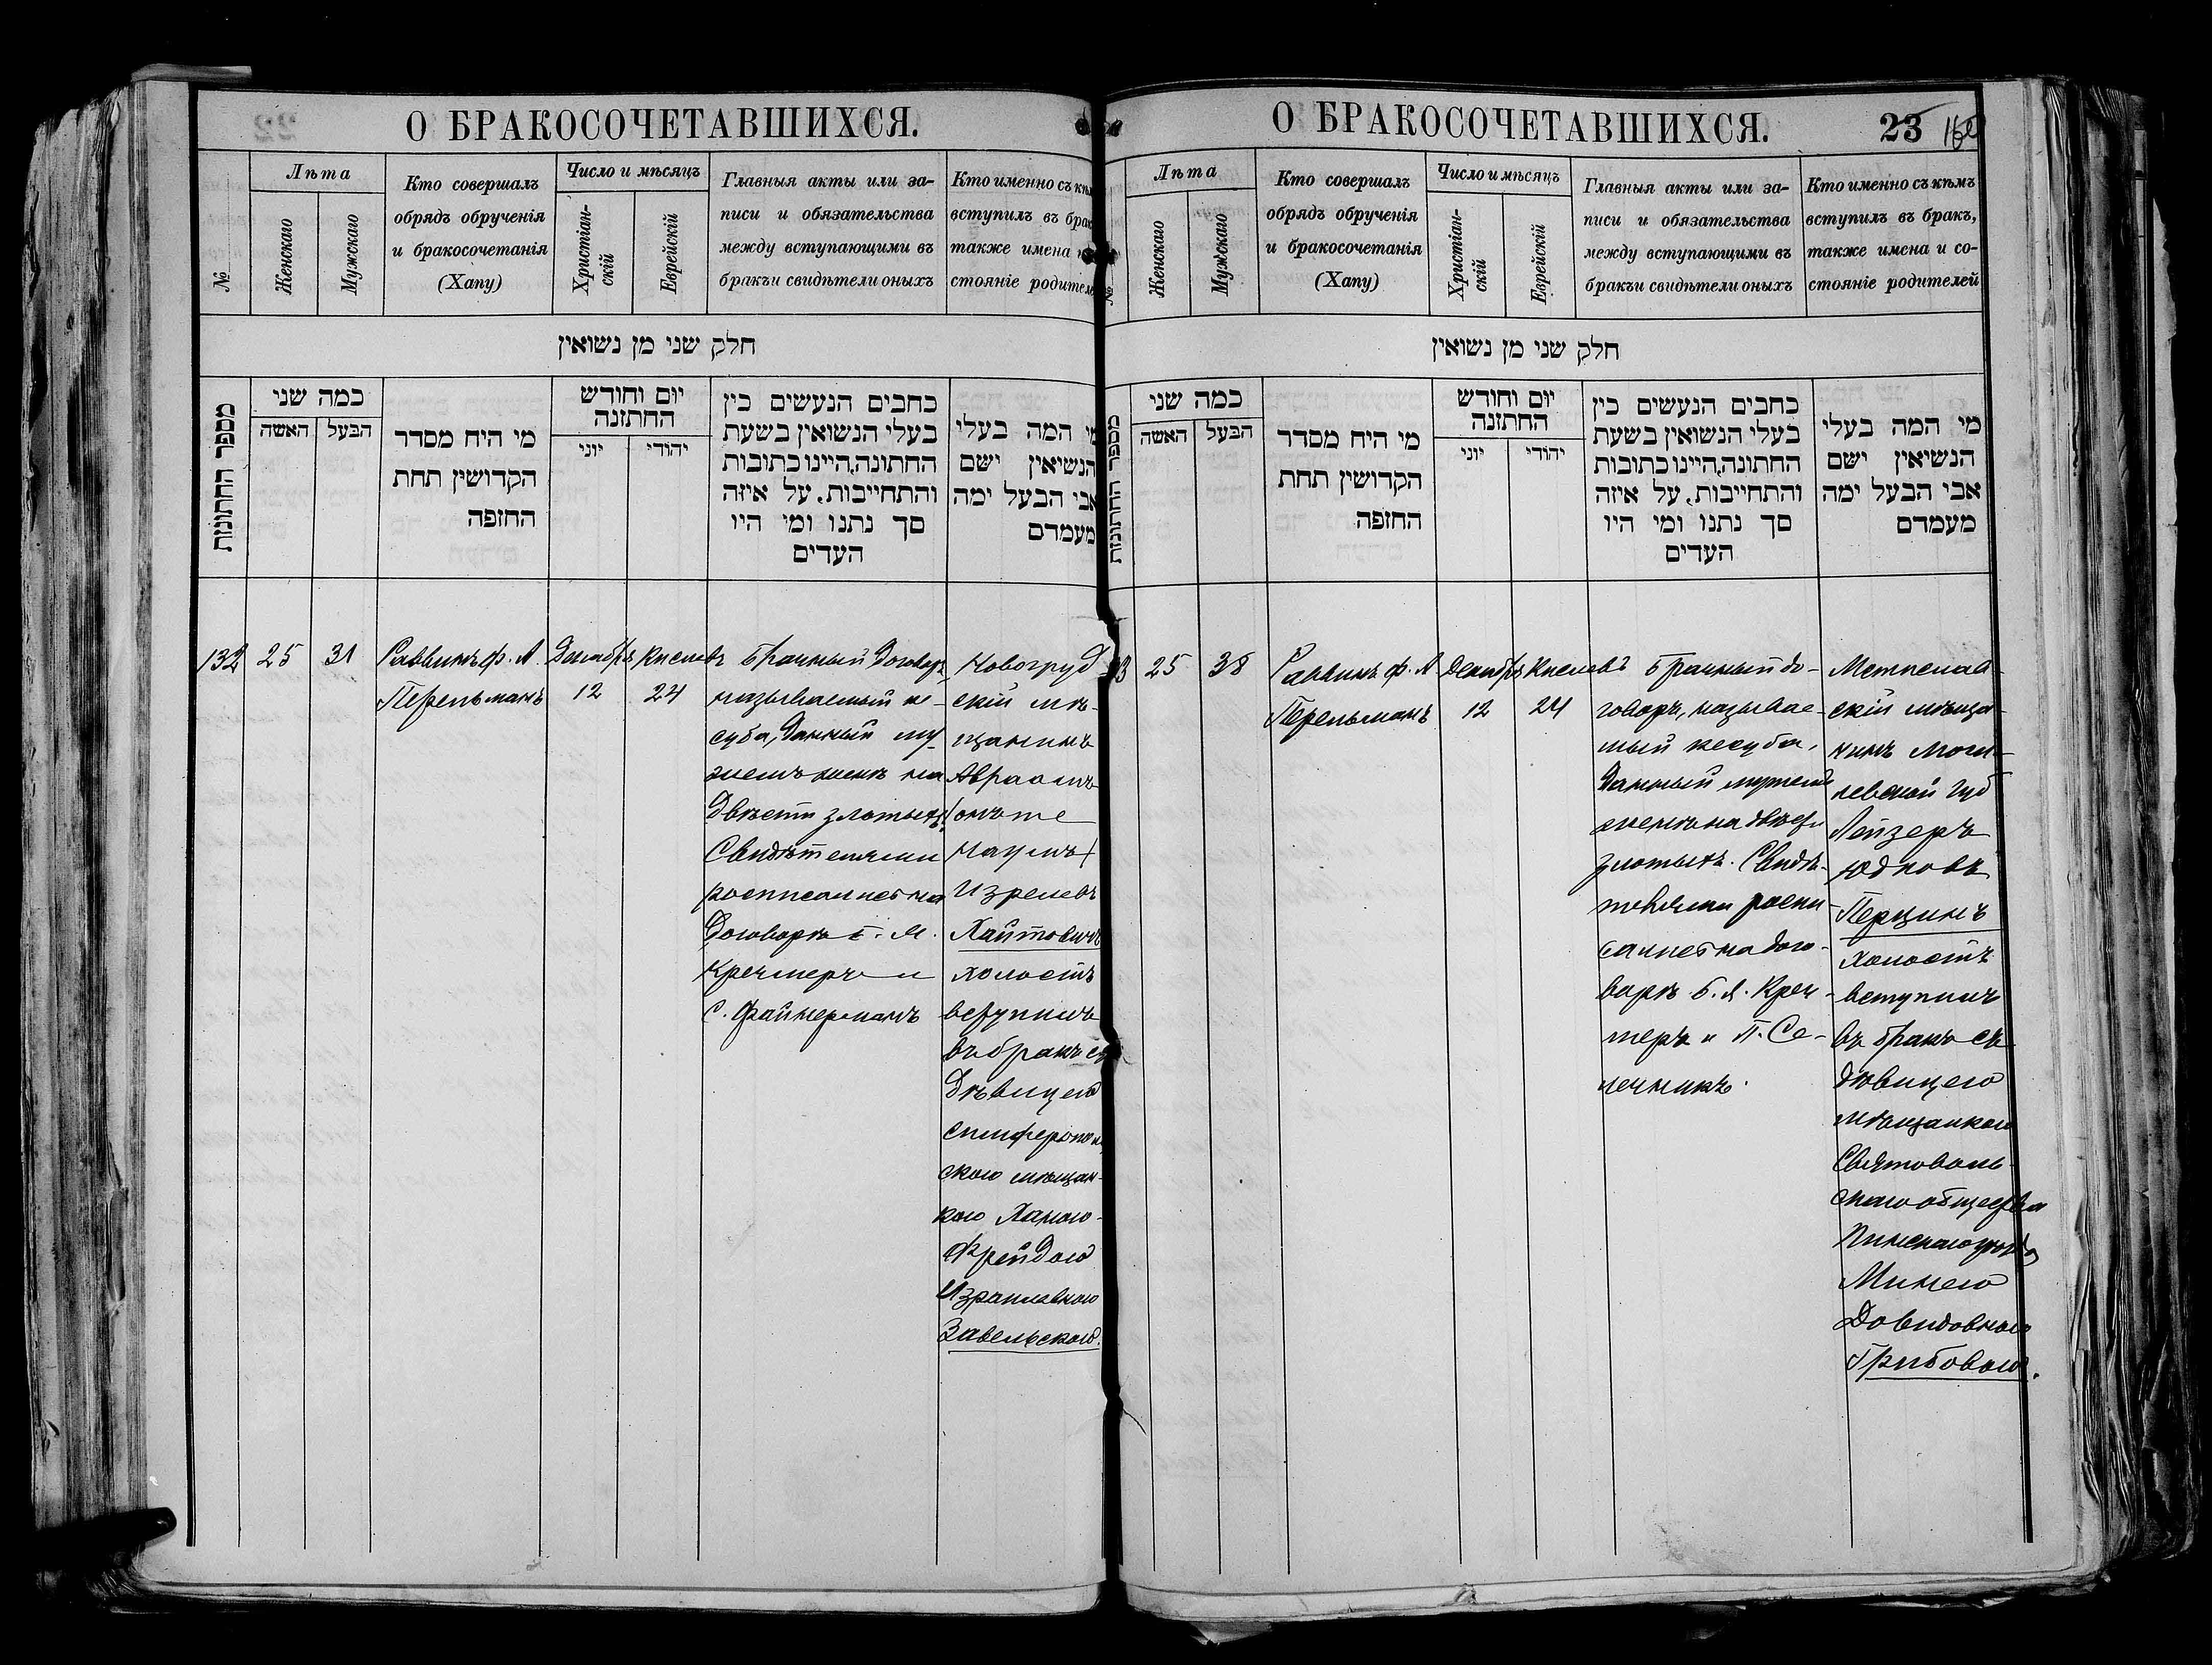 О БРАКОСОЧЕТАВШИХСЯ.
№
Лѣта
Женскаго
Мужскаго
Кто совершалъ
обрядъ обрученія
и бракосочетанія
(Хапу)
Число и мѣсяцъ
Христіан-
скій
Еврейскій
Главныя акты или за-
писи и обязательства
между вступающими въ
бракъи свидѣтели оныхъ
Кто именно съ кѣм
вступилъ въ брак
также имена и
стояніе родителе
חלק שני מן נשואין
מספר החתונות
כמה שני
האשה
הבעל
מי היח מסדר
הקדושין תחת
החזפה
יום וחודש
החתזנה
יוני
יהודי
כחבים הנעשים כין
בעלי הנשואין בשעת
החתונה,היינו כתובות
והתחייבות, על איזה
סך נתנו ומי היו
העדים
מי המה בעלי
הנשיאין ישם
אבי הבעל ימה
מעמדם
132
25
31
Раввинъ ф. А.
Перельманъ
Декабрь
12
Кислевъ
24
Брачный договоръ,
называемый ке-
суба, данный му-
жемъ женѣ на
двѣсти злотыхъ.
Свидѣтелями
росписались на
договорѣ М.
Кремеръ и
С. Файнерманъ
Новогруд
скій мѣ-
щанинъ
Авраамъ
/онъ же
Наумъ/
Изрелевъ
Хайтовичъ
холостъ
вступилъ
въ бракъ съ
дѣвицею
симферополь
скою мѣщан-
кою Ханою-
Фрейдою
Израилевною
Завельскою.
О БРАКОСОЧЕТАВШИХСЯ.
23
№
Лѣта
Женскаго
Мужскаго
Кто совершалъ
обрядъ обрученія
и бракосочетанія
(Хапу)
Число и мѣсяцъ
Христіан-
скій
Еврейскій
Главныя акты или за-
писи и обязательства
между вступающими въ
бракъи свидѣтели оныхъ
Кто именно съ кѣмъ
вступилъ въ бракъ,
также имена и со-
стояніе родителей
חלק שני מן נשואין
מספר החתונות
כמה שני
האשה
הבעל
מי היח מסדר
הקדושין תחת
החזפה
יום וחודש
החתזנה
יוני
יהודי
כחבים הנעשים כין
בעלי הנשואין בשעת
החתונה,היינו כתובות
והתחייבות, על איזה
סך נתנו ומי היו
העדים
מי המה בעלי
הנשיאין ישם
אבי הבעל ימה
מעמדם
25
38
Раввинъ ф. А
Перельманъ
Декабрь
12
Кислевъ
24
Брачный до-
говоръ, называе-
мый кесуба,
данный мужемъ
женѣ на двѣсти
злотыхъ. Свидѣ-
телями роспи-
сались на дого-
ворѣ Б. Я. Кре-
меръ и П. Се-
мѣща-
нинъ Моги-
левской губ
Лейзеръ
Юдковъ
Перцинъ
Холостъ
вступилъ
въ бракъ съ
дѣвицею
мѣщанкою
Святоволь-
скаго общества
Пинскаго уѣзда
Минею
Довидовною
Грибовою.